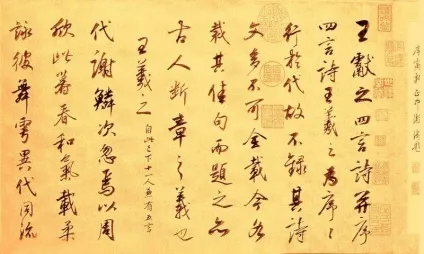 王獻之四言詩并序
四言詩王羲之為序〻
行於代故不錄其詩
文多不可全載今各
裁其佳句而題之亦
古人斷章之義也
王羲之 自此已下十一人並有五言
代謝鱗次忽焉以周
欣此暮春和氣載柔
詠彼舞雩異代同流